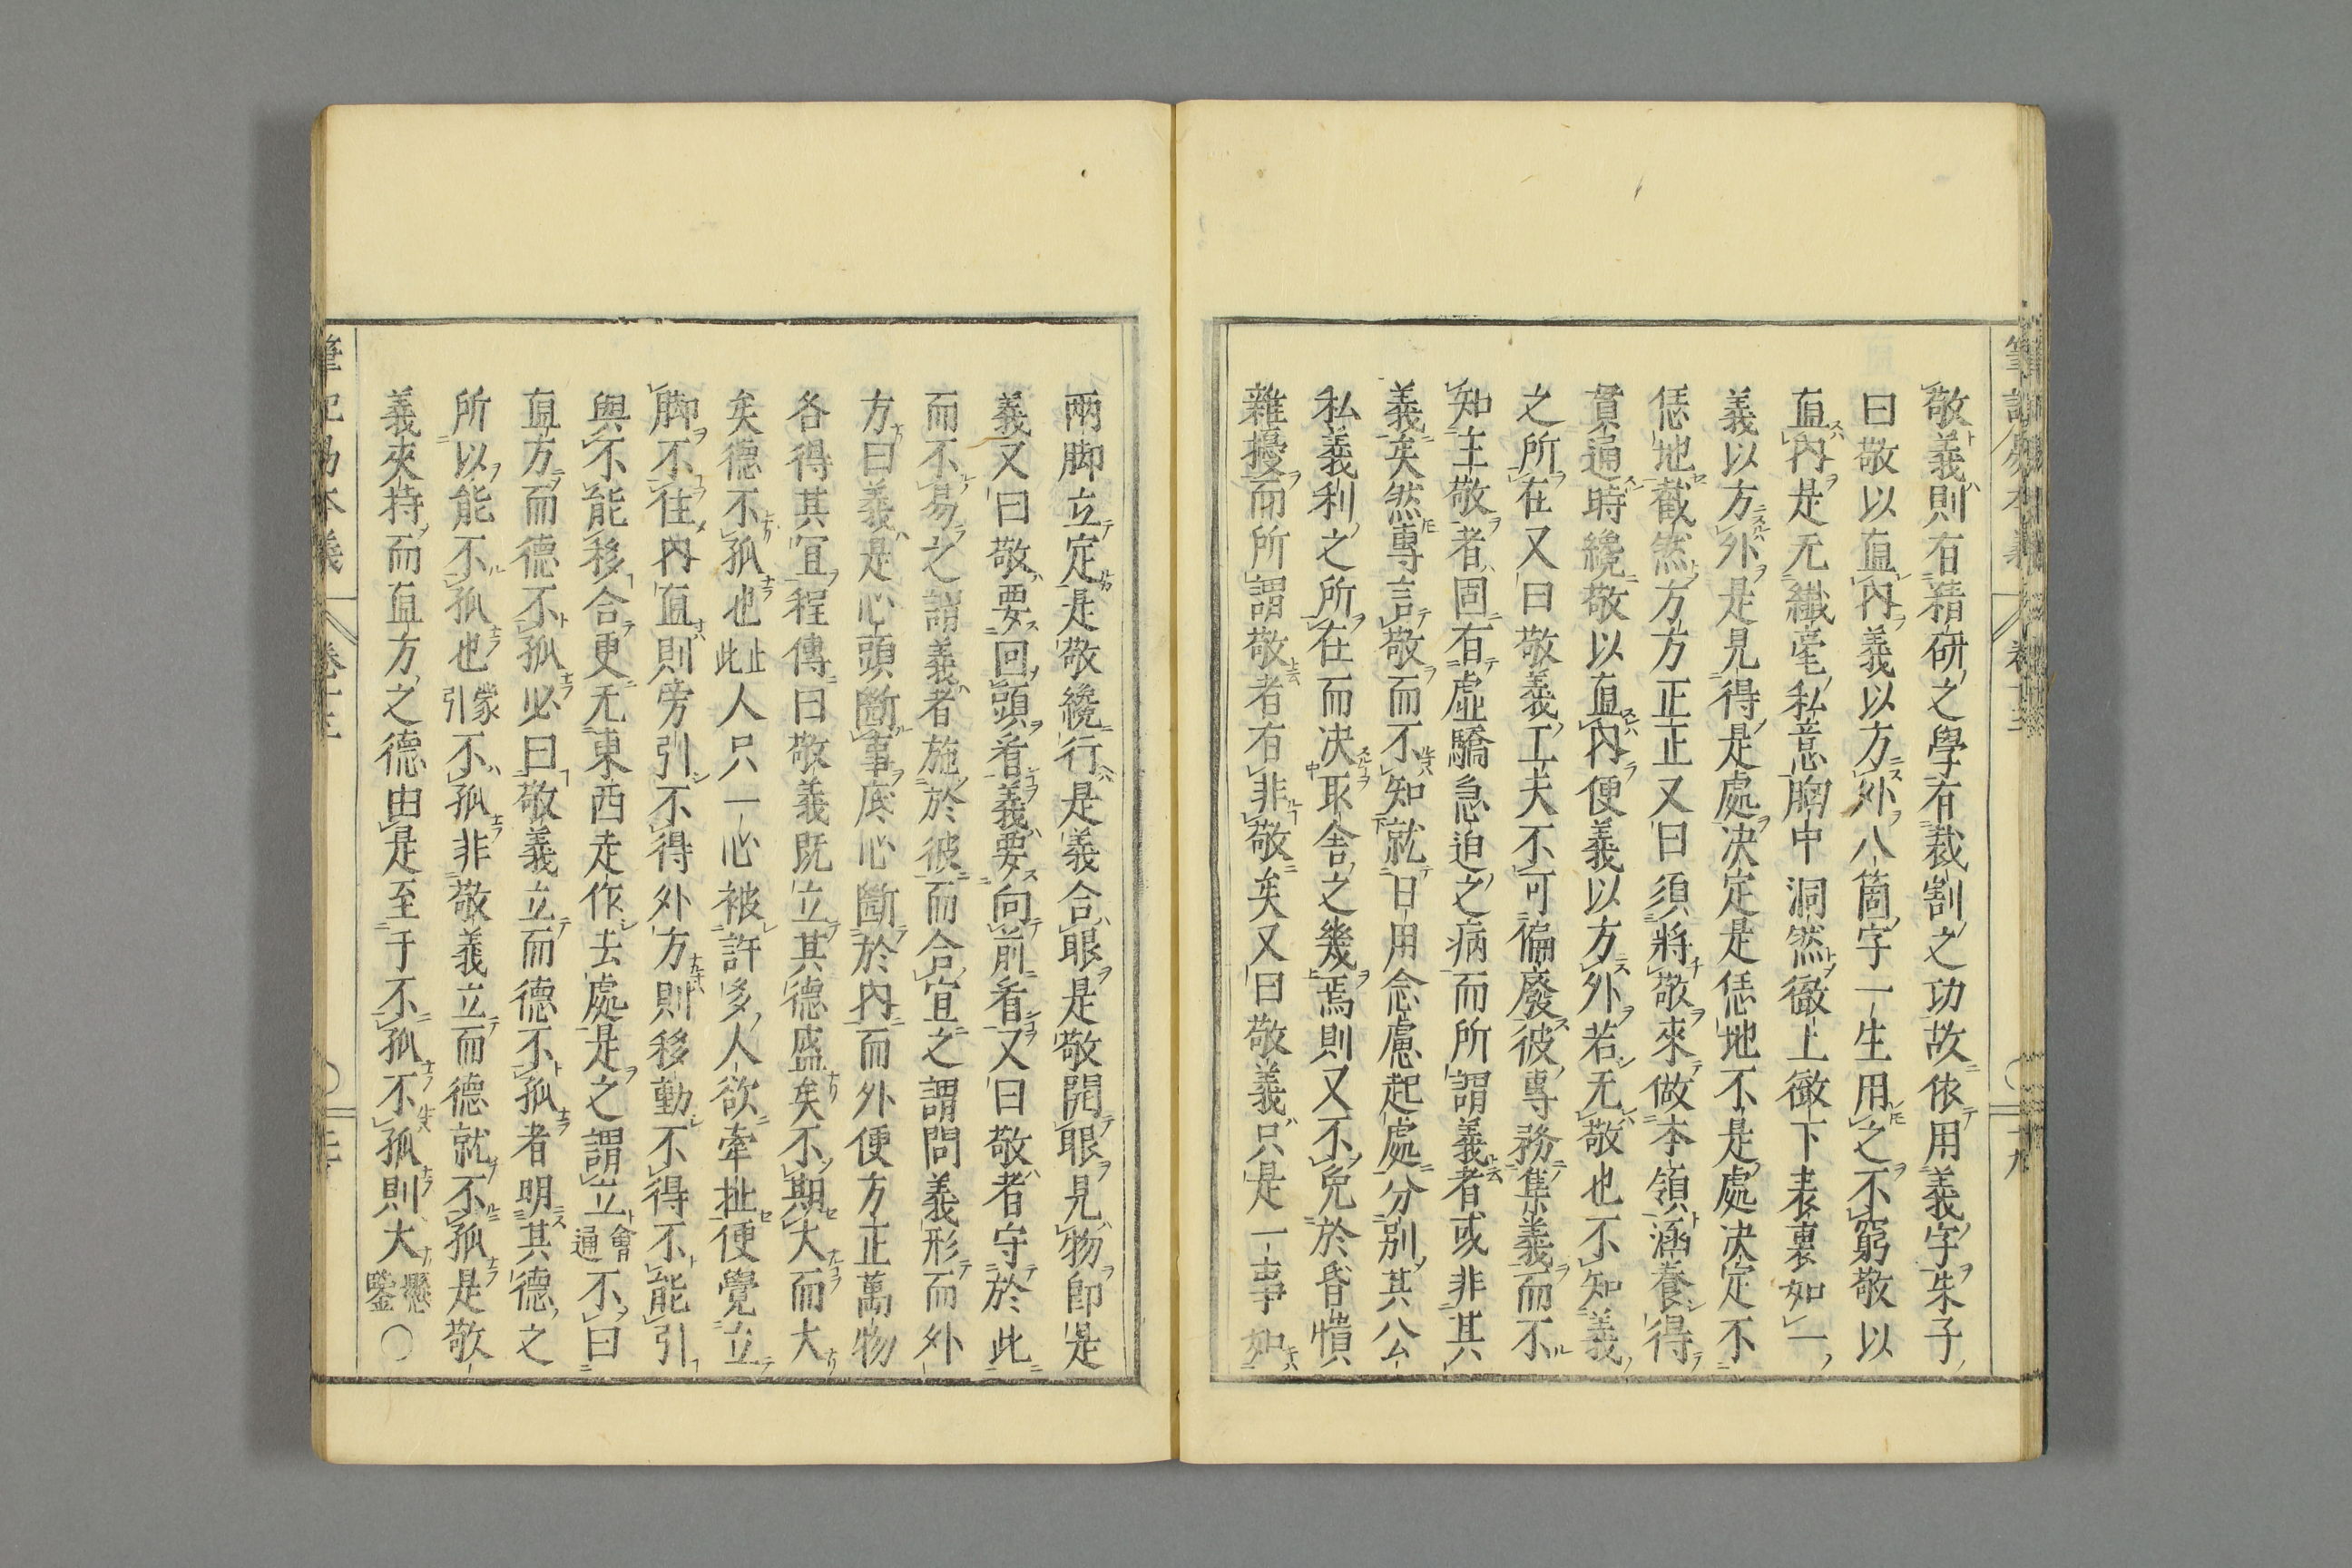 敬義則有精研之學有裁割之功故依用義字朱子
曰敬以直內義以方外八箇字一生用之不窮敬以
直內是无纖毫私意胸中洞然徹上徹下表裏如一
義以方外是見得是處決定是恁地不是處決定不
恁地截然方方正正又曰須將敬來做本領涵養得
貫通時纔敬以直內便義以方外若无敬也不知義
之所在又曰敬義工夫不可偏廢彼專務集義而不
知主敬者固有虛驕急迫之病而所謂義者或非其
義矣然專言敬而不知就日用念慮起處分別其公
私義利之所在而決取舍之幾焉則又不免於昏憒
雜擾而所謂敬者有非敬矣又曰敬義只是一事如
兩脚立定是敬纔行是義合眼是敬開眼見物卽是
義又曰敬要回頭看義要向前看又曰敬者守於此
而不易之謂義者施於彼而合宜之謂問義形而外
方曰義是心頭斷事底心斷於內而外便方正萬物
各得其宜程傳曰敬義既立其德盛矣不期大而大
矣德不孤也止此人只一心被許多人欲牽扯便覺立
脚不往內直則旁引不得外方則移動不得不能引
與不能移合更无東西走作去處是之謂立會通不曰
直方而德不孤必曰敬義立而德不孤者明其德之
所以能不孤也蒙引不孤非敬義立而德就不孤是敬
義夾持而直方之德由是至于不孤不孤則大懸鑒〇